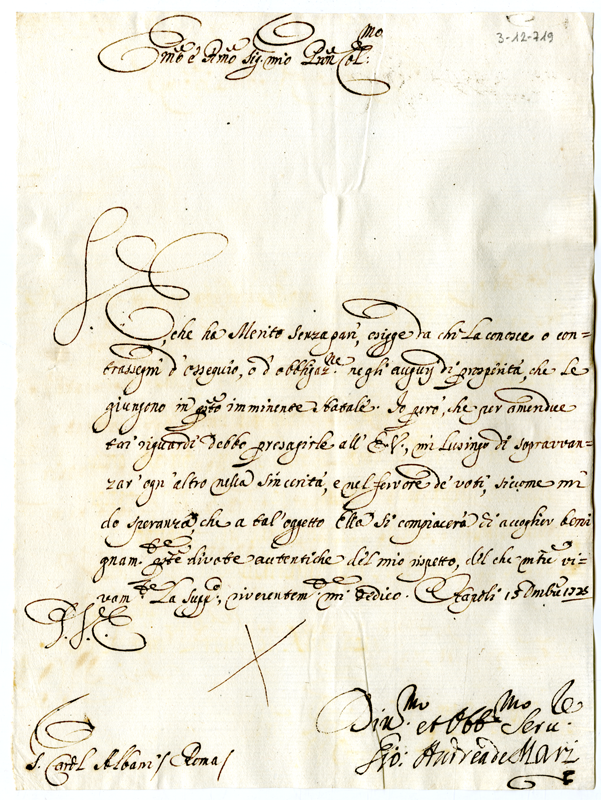 3-12-719
Emo e Rmo Sig. mio Pron Colmo:
S. E.
, che ha Merito senza pari, esigge da chi La conosce o con=
trassegni d'ossequio, o d'obbligaz.ne negli augurij di prosperità, che Le
giungono in q̃sto imminente Natale. Io però, che per amendue
tai riguardi debbo presagirle all' E.V., mi Lusingo di sopravvan=
zar' ogn' altro nella sincerità, e nel fervore de' voti, siccome mi
do speranza, che a tal' oggetto Ella si compiacerà di accoglier beni
gnam.te q̃ste divote autentiche del mio rispetto, del che mtre vi=
vam.te La Supp.co, riverentem.te mi dedico. Napoli 15 Xmbre
D. S. E.
Div.mo et Obb.mo Serv.re
Gio: Andrea de Mari
S. Cardl Albani / Roma /